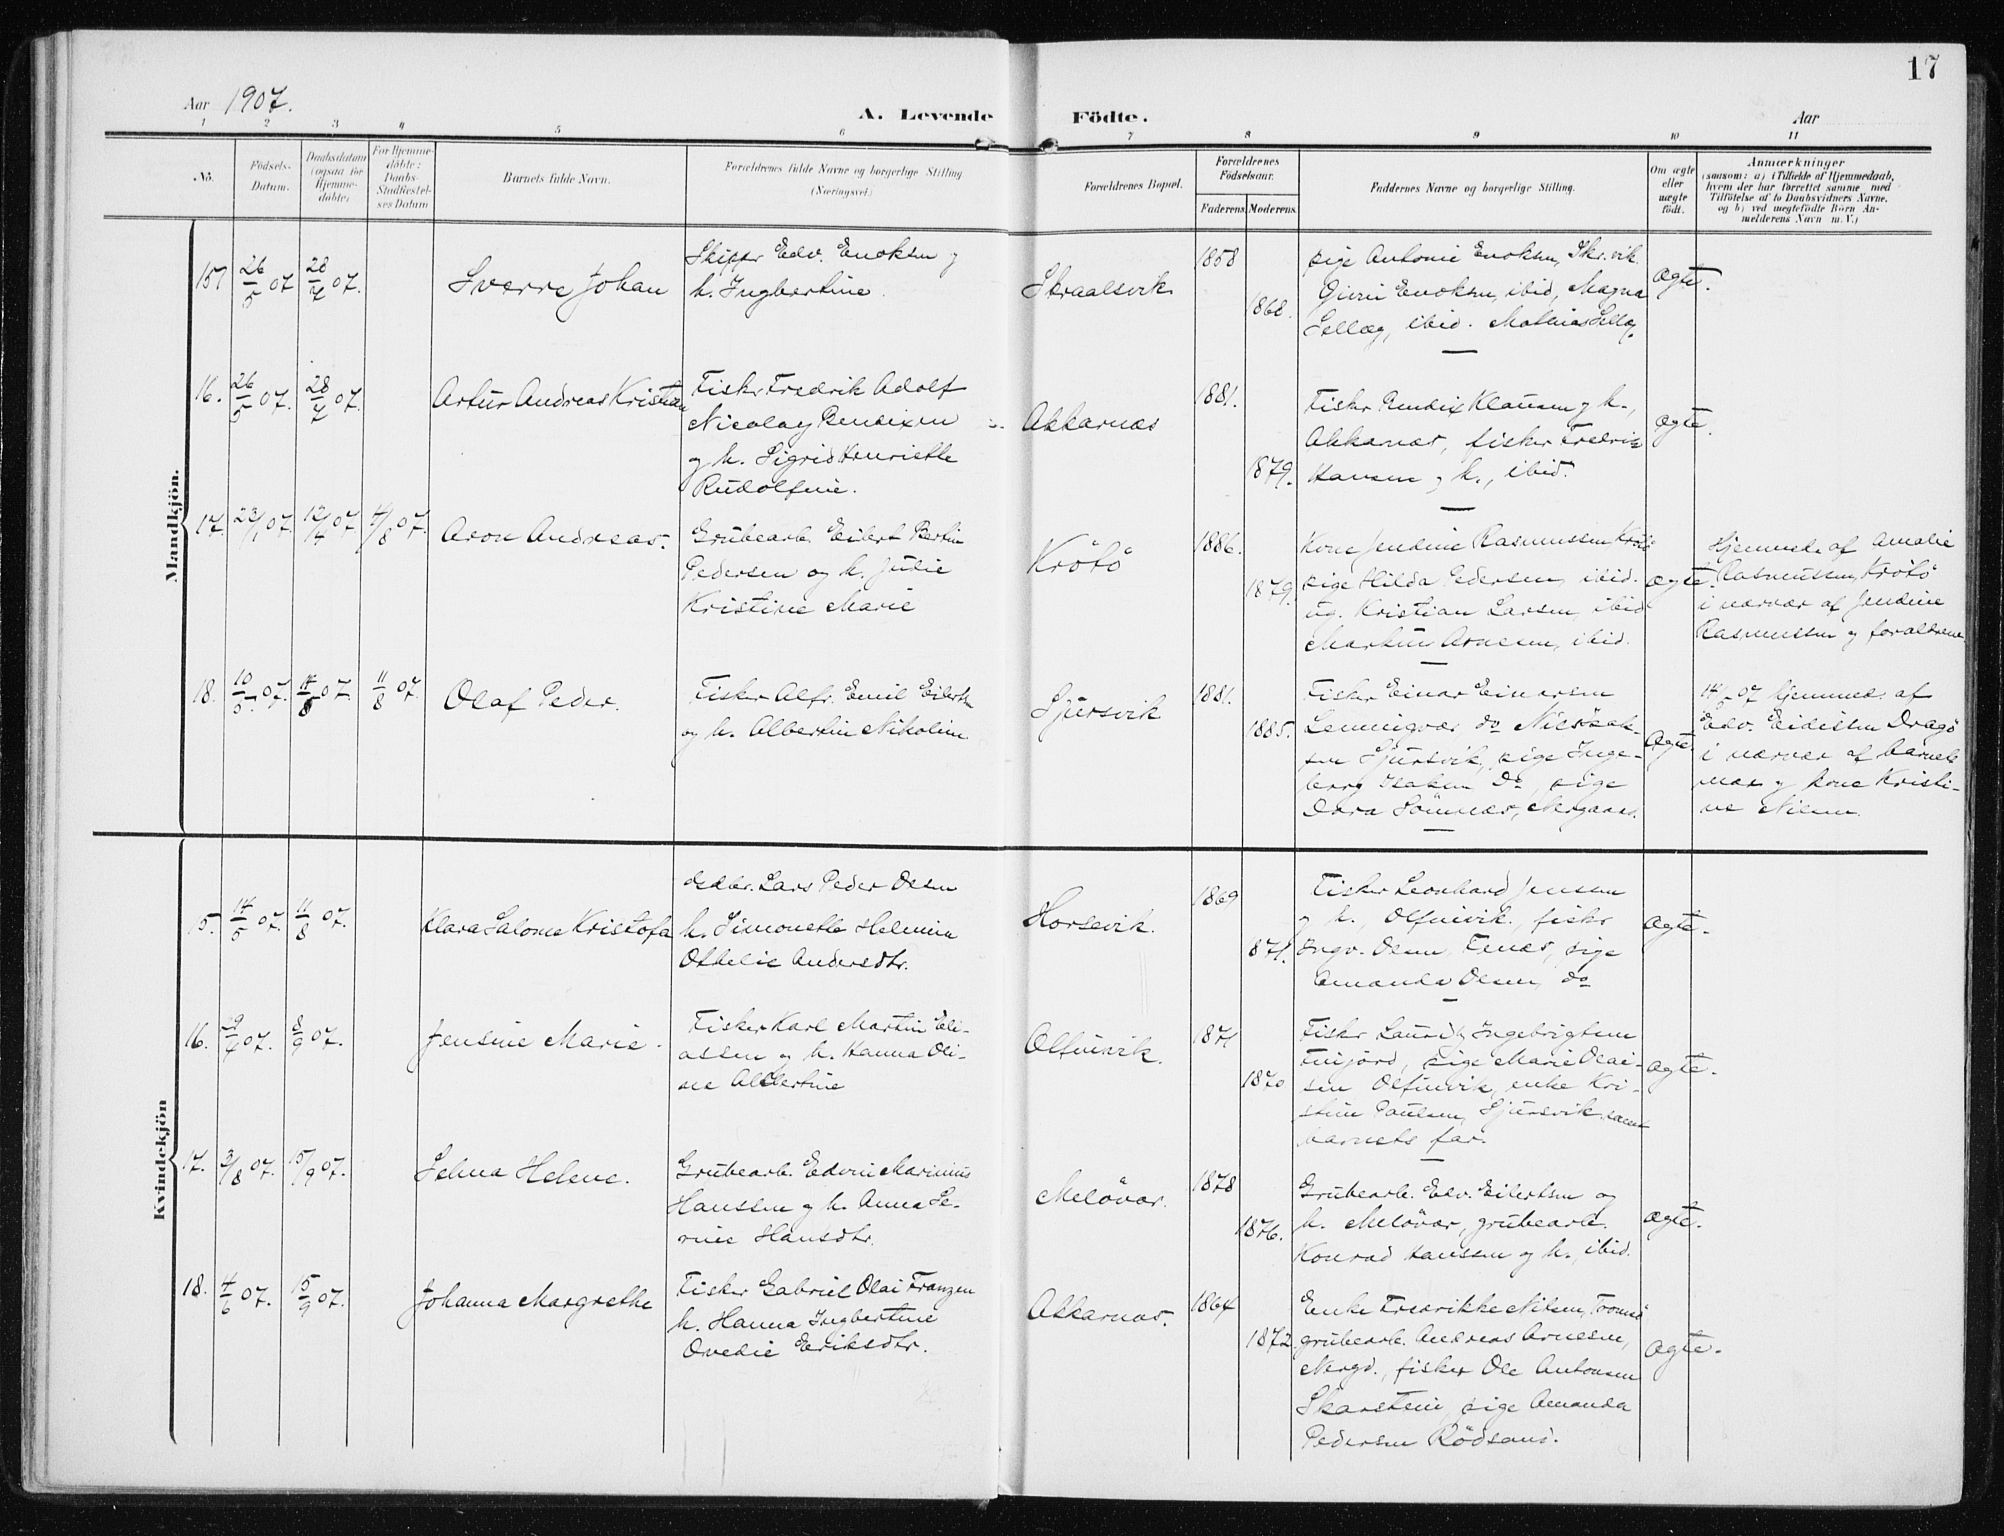 17
Aar 1907.
A. Levende Födte.
Aar
1 2 3 4 5 6 7 8 9 10 11
No.
Födsels-
Datum.
Daabsdatum
(ogsaa for
Hjemme-
döbte)
For Hjemme-
döbte:
Daabs-
Stadfæstel-
ses Datum
Barnets fulde Navn.
Forældrenes fulde Navne og borgerlige Stilling
(Næringsvei)
Forældrenes Bopæl.
Forældrenes
Födselsaar.
Faderens Moderens
Faddernes Navne og borgerlige Stilling.
Om ægte
eller
uægte
födt.
Anmærkninger
(saasom: a) i Tilfælde af Hjemmedaab,
hvem der har forrettet samme med
Tilföielse af to Daabsvidners Navne,
og b) ved uægtefödte Börn An-
melderens Navn m. V.)
Mandkjön.
15 26/5 07 28/7 07.
Sverre Johan
Skippr Edv. Enoksen og
h. Ingbertine.
Skraalsvik
1858
1868.
pige Antonie Enoksen, Skr.vik
Enoksen, ibid, Magna
Sellæg, ibid. Mathias Sellæg.
Ægte.
16. 26/5 07. 28/7 07.
Artur Andreas Kristian
Fisker Fredrik Adolf
Nicolay Bendixen
og h. Sigrid Henriette
Rudolfine.
Akkarnæs
1881.
1879.
Fisker Bendix Klausen og h.,
Akkanær, fisker Fredrik
Hansen og h., ibid.
Ægte.
17. 23/1 07. 12/4 07 4/8 07.
Aron Andreas.
Grubearb. Eilert Bertin
Pedersen og h. Julie
Kristine Marie
Krötö
1886.
1879.
Kone Jendine Rasmussen Krötö
pige Hilda Pedersen, ibid.
ug. Kristian Larsen, ibid
Martin Arnesen, ibid.
Ægte.
Hjemmed. af Amalie
Rasmussen, Krötö
i nærvær af Jendine
Rasmussen og forældrene.
18. 10/5 07. 14/6 07. 11/8 07.
Olaf Peder.
Fisker Alfr. Emil Eilerts
og h. Albertin Nikoline
Sjursvik
1881.
1885.
Fisker Einar Einarsen
Lemmigvær do Nils Isak-
sen Sjursvik, pige Inge-
borg Isaksen do, pige
Dora Sömnær, Mefjaar.
Ægte.
14/6 07 hjemmed. af
Edv. Eidissen Dragö
i nærvær af barnets
mor og kone Kristi-
ne Nilsen.
Kvindekjön
15. 14/5 07. 11/8 07.
Klara Salome Kristofa
Gdbr. Lars Peder Olsen
h. Simonette Helmine
Othelie Andersdtr.
Horsevik.
1869
1871.
Fisker Leonhard Jensen
og h. Olfinvik, fisker
Ingv. Olsen, Fenæs, pige
Amanda Olsen, do
Ægte.
16. 29/7 07. 8/9 07.
Jensine Marie.
Fisker Karl Martin Eli-
assen og h. Hanna Oli-
ne Albertine
Olfinvik.
1871
1870
Fisker Lauritz Ingebrigtsen
Finjord, pige Marie Olai-
sen Olfinvik, enke Kri-
stine Paulsen, Sjursvik, samt
barnets far.
Ægte.
17. 3/8 07. 15/9 07.
Selma Helene.
Grubearb. Edvin Marinius
Hanssen og h. Anna Se-
rine Hansdtr.
Melövær.
1878
1876.
Grubearb. Edv. Eilertsen og
h. Melövær, grubearb.
Konrad Hanssen og h., ibid.
Ægte.
18. 4/6 07. 15/9 07.
Johanna Margrethe
Fisker Gabriel Olai Franzen
h. Hanna Ingbertine
Ovedie Eriksdtr.
Akkarnæs.
1864
1872.
Enke Fredrikke Nilsen, Tromsö
grubearb. Andreas Arnesen,
Mefjd., fisker Ole Antonsen
Skarstein, pige Amanda
Pedersen Rödsand.
Ægte.